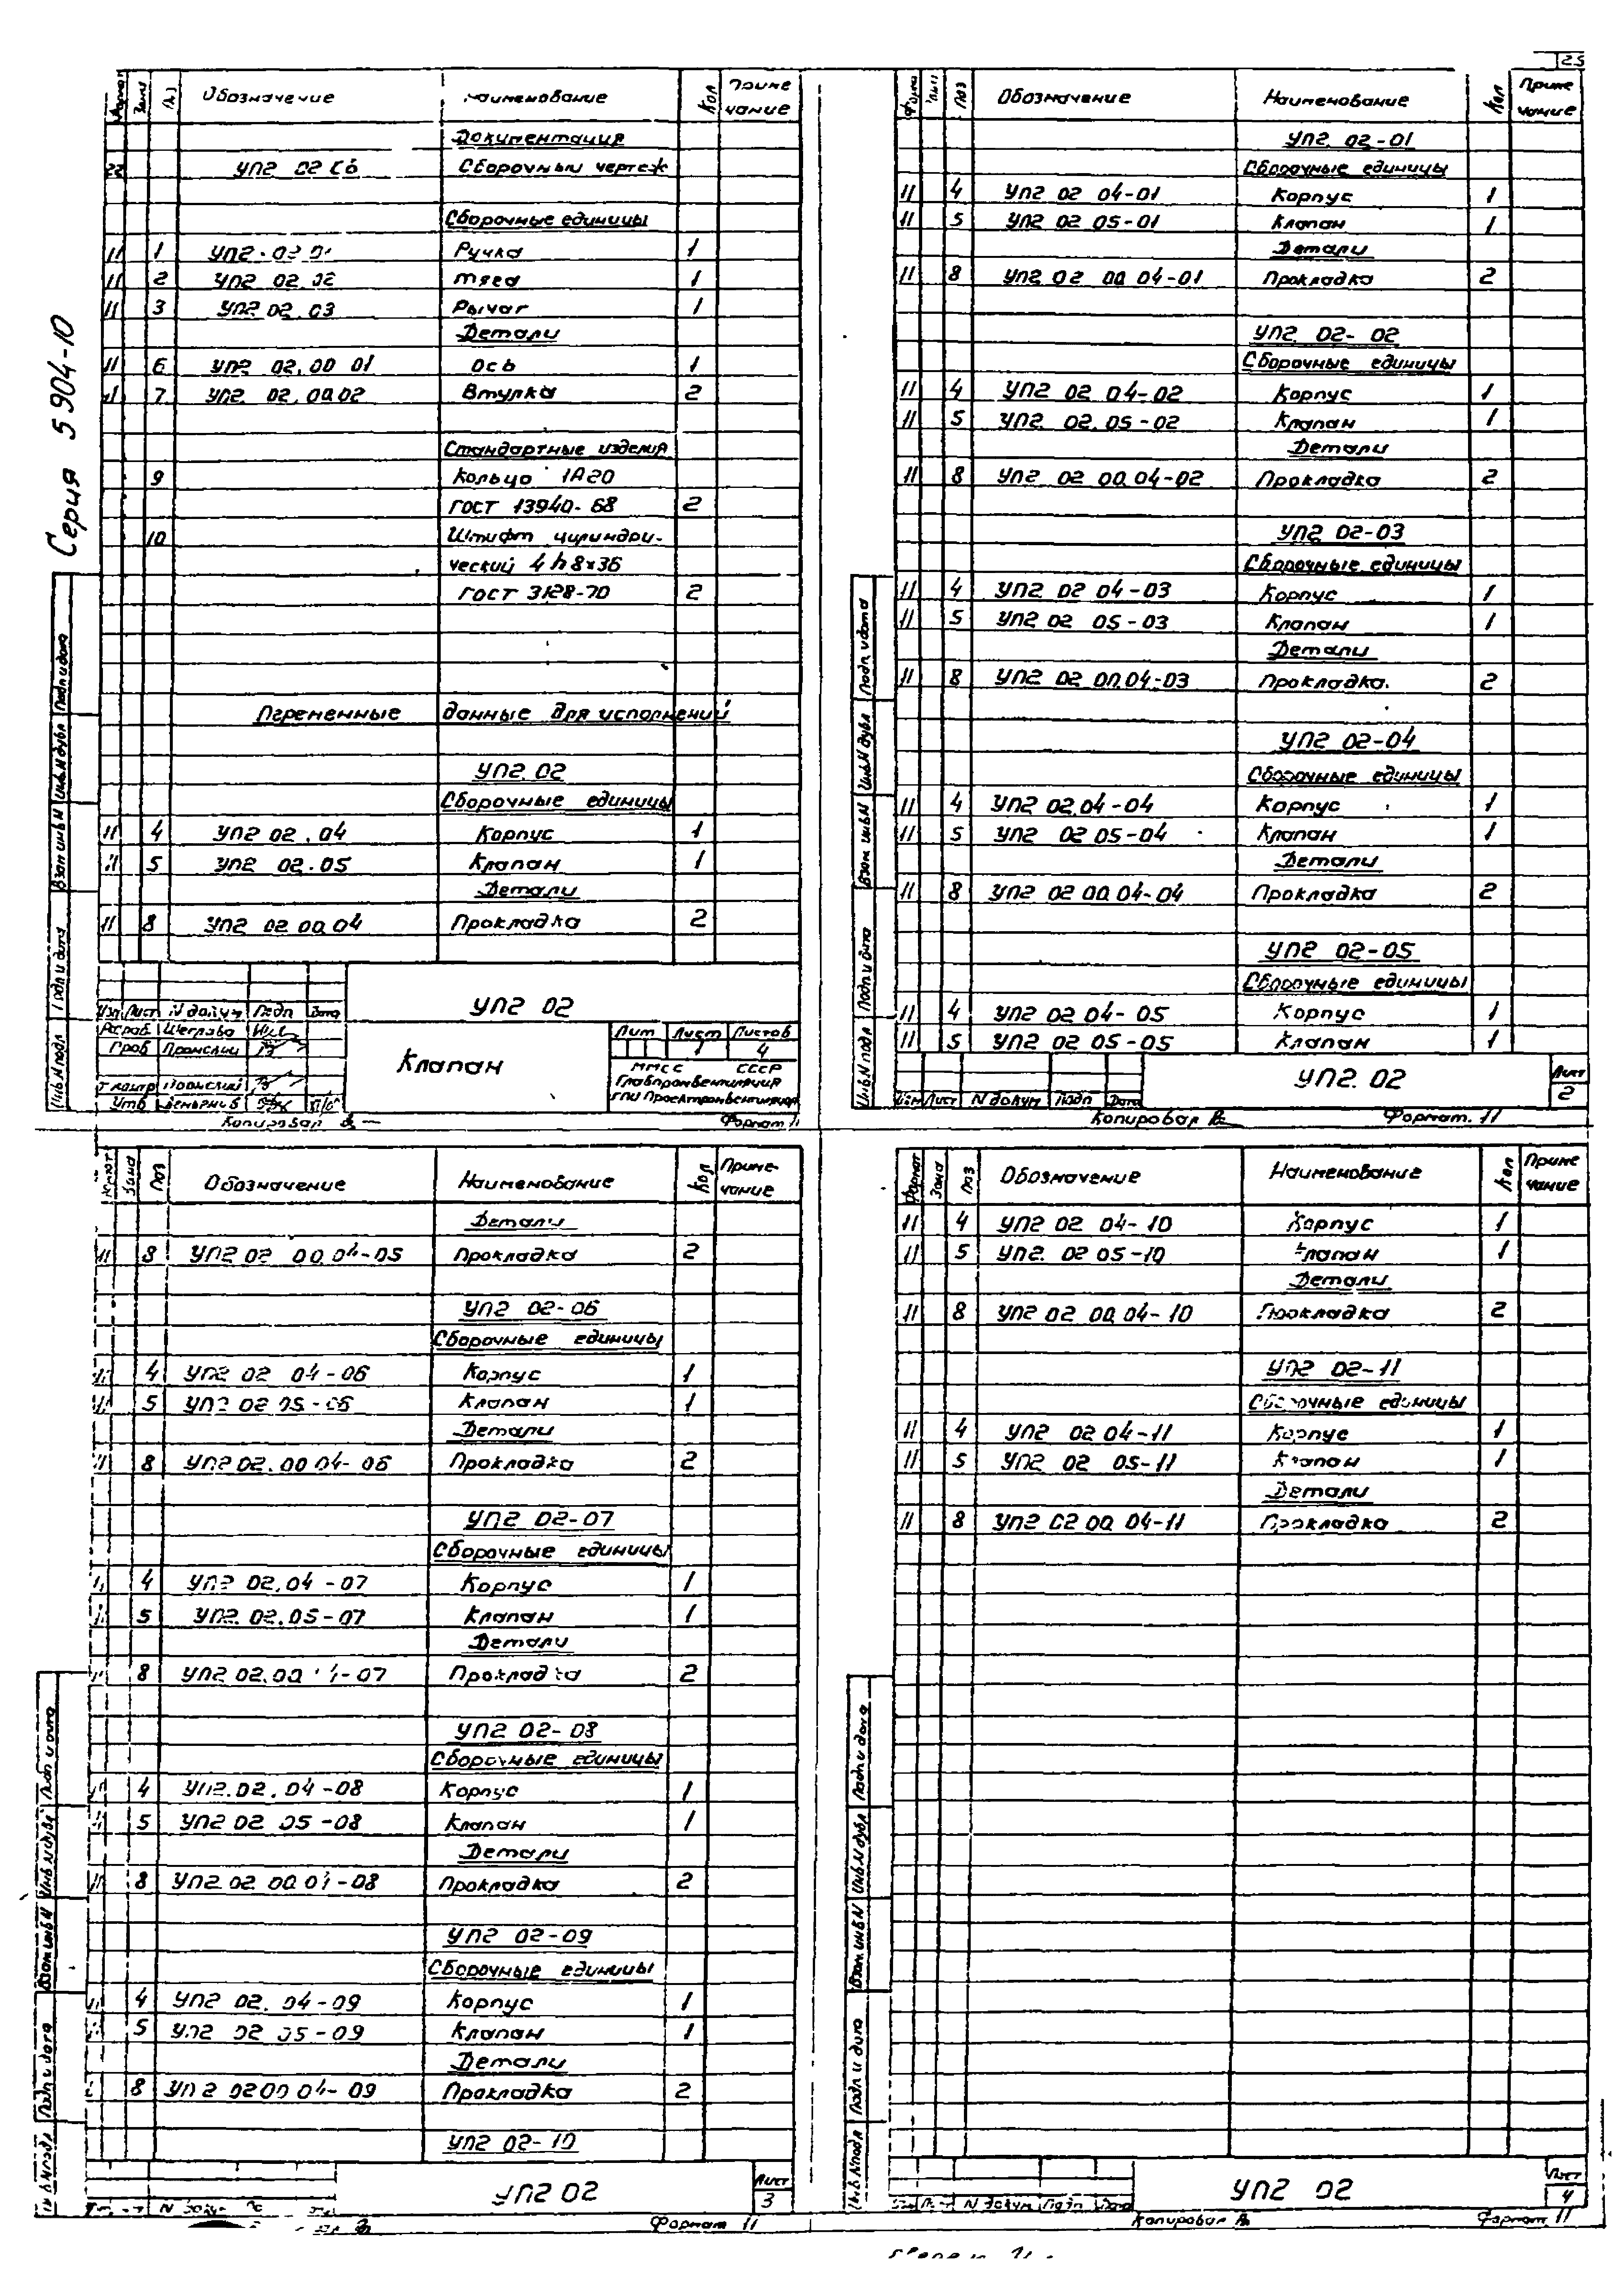 25
Серия 5 904-10
Обозначение Наименование Кол Приме
чание
Документация
22 УП2 02 СБ Сборочный чертеж
Сборочные единицы
11 1 УП2.02 01 Ручка 1
11 2 УП2 02.02 Тяга 1
11 3 УП2.02.03 Рычаг 1
Детали
11 6 УП2 02.00 01 Ось 1
11 7 УП2. 02.00.02 Втулка 2
Стандартные изделия
9 Кольцо 1А20
ГОСТ 13940-68 2
10 Штифт цилиндри-
ческий 4h8x36
ГОСТ 3128-70 2
Переменные данные для исполнений
УП2.02
Сборочные единицы
11 4 УП2 02.04 Корпус 1
11 5 УП2 02.05 Клапан 1
Детали
11 8 УП2 02 00.04 Прокладка 2
Изм Лист N докум Подп Дата
Разраб Щеглова
Пров
Т контр
Утв
УП2 02
Клапан
Лит Лист Листов
1 4
ММСС СССР
Главпромвентиляция
ГПИ Проектпромвентиляция
Копировал Формат 11
Подп. и дата
Инв N дубл
Взам инв N
Подп и дата
Инв N подл
Форма Зона Поз Обозначение Наименование Кол Приме
чание
УП2. 02-01
Сборочные единицы
11 4 УП2 02 04-01 Корпус 1
11 5 УП2 02 05-01 Клапан 1
Детали
11 8 УП2. 02 00 04-01 Прокладка 2
УП2. 02-02
Сборочные единицы
11 4 УП2 02 04-02 Корпус 1
11 5 УП2. 02.05-02 Клапан 1
Детали
11 8 УП2 02 00.04-02 Прокладка 2
УП2 02-03
Сборочные единицы
11 4 УП2 02 04-03 Корпус 1
11 5 УП2 02 05-03 Клапан 1
Детали
11 8 УП2 02 00.04-03 Прокладка. 2
УП2 02-04
Сборочные единицы
11 4 УП2 02.04-04 Корпус 1
11 5 УП2 02 05-04 Клапан 1
Детали
11 8 УП2 02 00.04-04 Прокладка 2
УП2 02-05
Сборочные единицы
11 4 УП2 02 04-05 Корпус 1
11 5 УП2 02 05-05 Клапан 1
Изм Лист N докум Подп Дата
УП2. 02
Лист
2
Копировал Формат. 11
Подп. и дата
Инв N дубл
Взам инв N
Подп. и дата
Инв N подл
Формат Зона Поз Обозначение Наименование Кол Приме-
чание
Детали
11 8 УП2 02 00.04-05 Прокладка 2
УП2 02-06
Сборочные единицы
11 4 УП2 02 04-06 Корпус 1
11 5 УП2 02 05-06 Клапан 1
Детали
11 8 УП2 02.00 04-06 Прокладка 2
УП2 02-07
Сборочные единицы
4 УП2 02.04-07 Корпус 1
5 УП2. 02.05-07 Клапан 1
Детали
8 УП2 02.00 04-07 Прокладка 2
УП2 02-08
Сборочные единицы
4 УП2.02.04-08 Корпус 1
5 УП2 02 05-08 Клапан 1
Детали
11 8 УП2 02 00 04-08 Прокладка 2
УП2 02-09
Сборочные единицы
11 4 УП2 02. 04-09 Корпус 1
5 УП2 02 05-09 Клапан 1
Детали
8 УП2 02 00 04-09 Прокладка 2
УП2 02-10
УП2 02
Лист
3
Формат 11
Подп и дата
Инв N дубл
Взам инв N
Подп и дата
Инв N подл
Формат Зона Поз Обозначение Наименование Кол Приме
чание
11 4 УП2 02 04-10 Корпус 1
11 5 УП2. 02 05-10 Клапан 1
Детали
11 8 УП2 02 00 04-10 Прокладка 2
УП2 02-11
Сборочные единицы
11 4 УП2 02 04-11 Корпус 1
11 5 УП2 02 05-11 Клапан 1
Детали
11 8 УП2 02 00 04-11 Прокладка 2
N докум Подп Дата
УП2 02
Лист
4
Копировал Формат 11
Подп и дата
Инв N дубл
Взам инв N
Подп и дата
Инв N подл